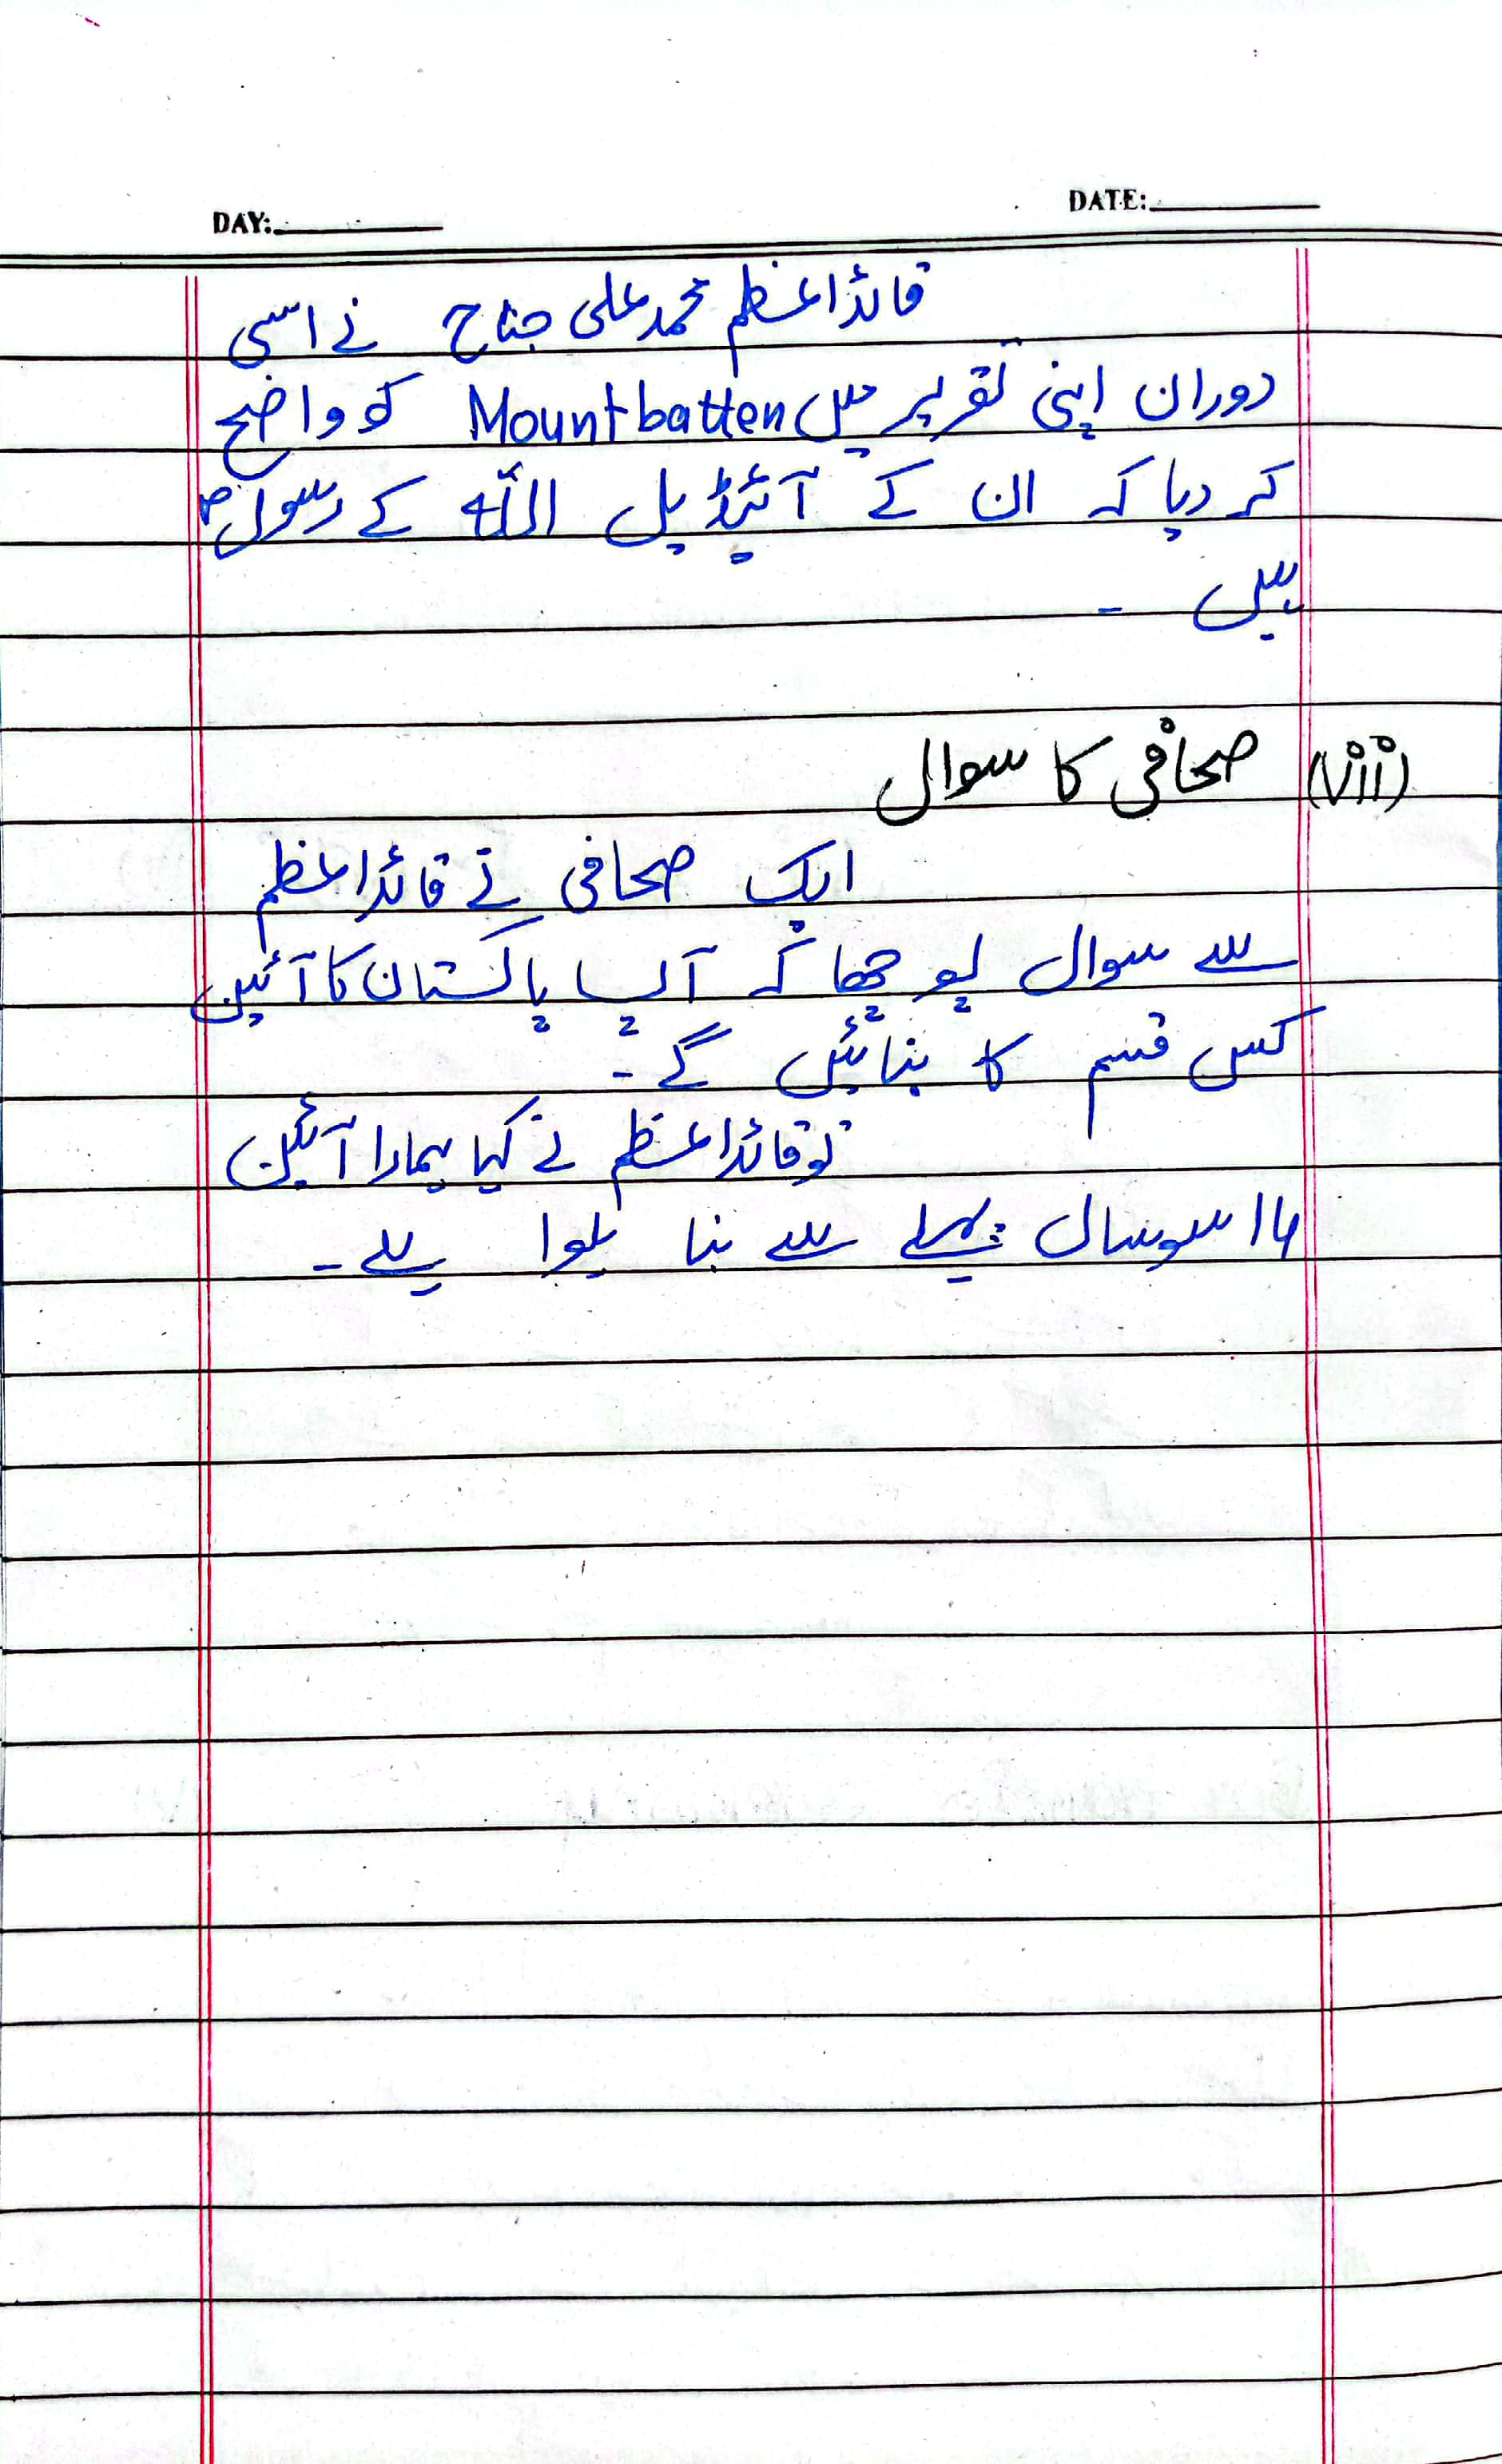 DAY:
DATE:
قائداعظم محمد علی جناح نے اسی
دوران اپنی تقریر میں Mountbatten کو واضح
کر دیا کہ ان کے آئیڈیل اللہ کے رسولؐ
ہیں ۔
(vii) صحافی کا سوال
ایک صحافی نے قائداعظم
سے سوال پوچھا کہ آپ پاکستان کا آئین
کس قسم کا بنائیں گے ۔
تو قائداعظم نے کہا ہمارا آئین
۱۴ سو سال پہلے سے بنا ہوا ہے ۔